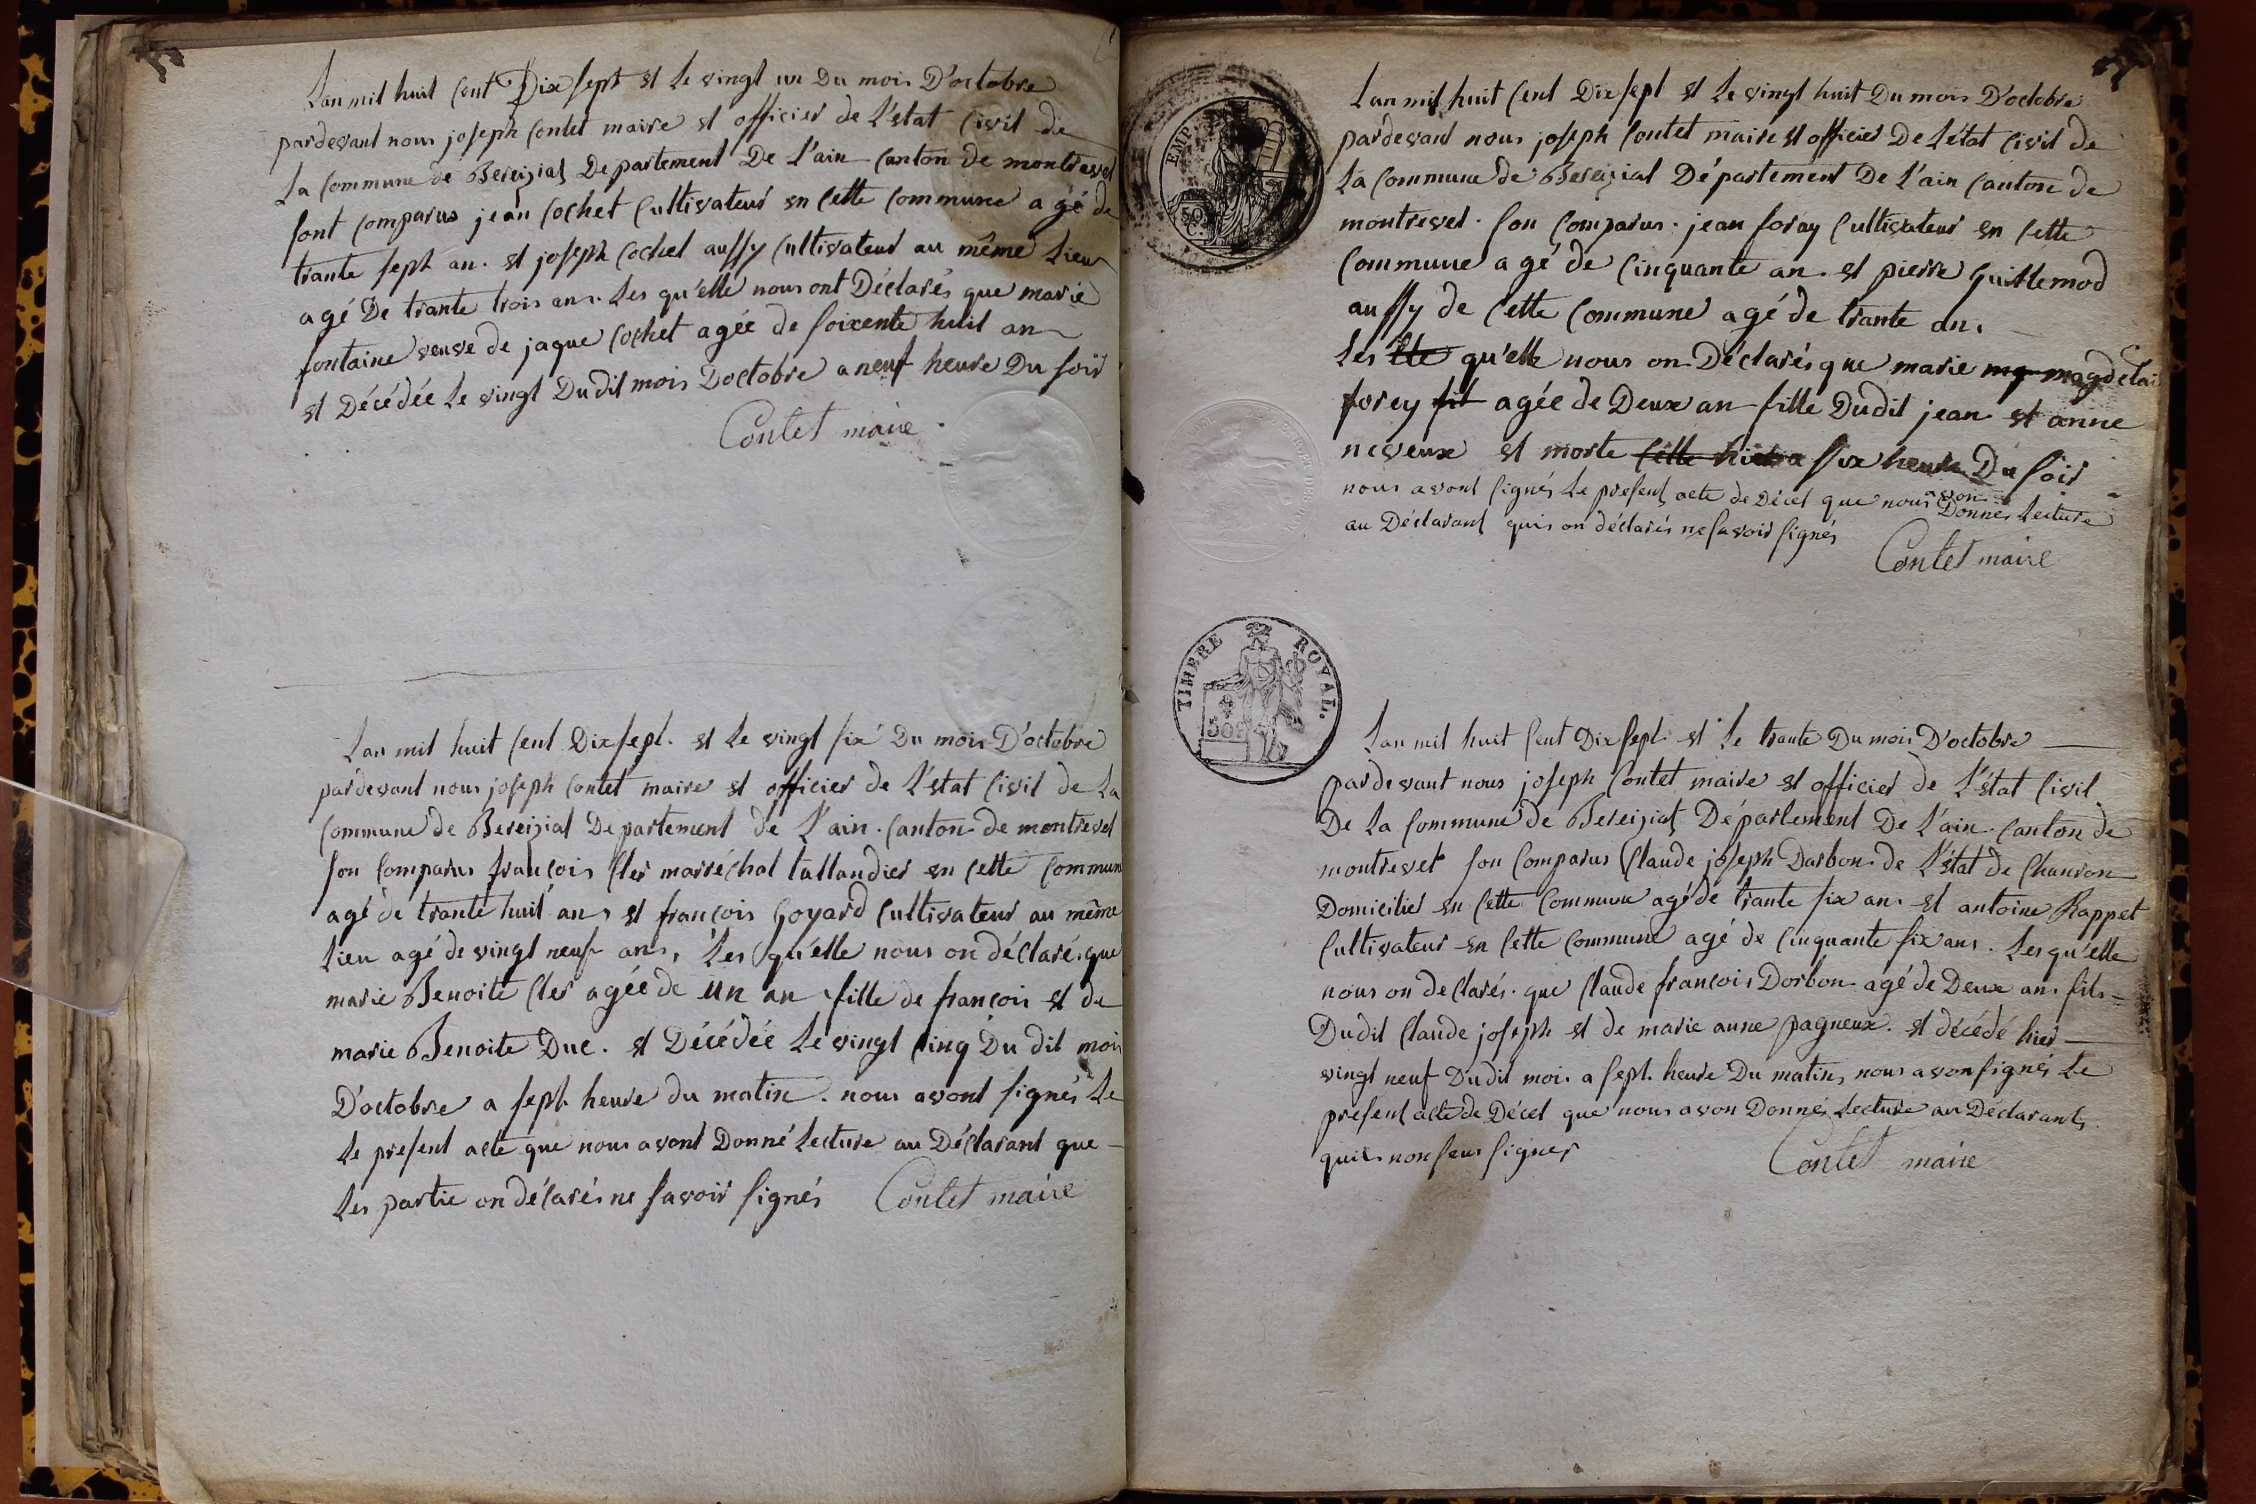 Lan mil huit cent Dix sept et le vingt un Du mois D'octobre
pardevant nous joseph Contet maire et officier de L'état Civil de
La Commune de Bereiziat Departement De L'ain Canton de montrevel
sont comparus jean Cochet Cultivateur en Cette Commune agé de
trante sept an. et joseph Cochet aussy Cultivateur au même Lieu
agé De trante trois ans. Les qu'elle nous ont Déclarés que marie
fontaine veuve de jaque Cochet agée de soixente huit an
et Décédée Le vingt Dudit mois Doctobre a neuf heure Du soir
Contet maire
Lan mil huit cent Dix sept. et Le vingt six Du mois D'octobre
pardevant nous joseph Contet maire et officier de L'état Civil de La
Commune de Bereiziat Departement de L'ain. Canton de montrevel
son Comparus françois Cler marréchal tallandier en Cette Commun
agé de trante huit ans et françois Goyard Cultivateur au même
Lieu agé de vingt neuf ans, Les qu'elle nous on déclarés que
marie Benoite Cler agée de un an fille de françois et de
marie Benoite Duc. et Décédée Le vingt Cinq Du dit mois
D'octobre a sept heure du matin. nous avont signés Le
Le present acte que nous avont Donné Lecture au Déclarant que
Les partie on déclarés ne savoir signés Contet maire
EMP
50
C.
Lan mil huit Cent Dix sept et Le vingt huit Du mois D'octobre
pardevant nous joseph Contet maire et officier De L'état Civil de
La Commune de Bereiziat Département De L'ain Canton de
montrevel. son Comparus. jean foray Cultivateur en Cette
Commune agé de Cinquante an. et pierre Guillemod
aussy de Cette Commune agé de trante an.
Les qu'elle nous on Déclarés que marie magdelai
forey fil agée de Deux an fille Dudit jean et anne
neveux et morte Cette hier a six heure Du soir
nous avont signés Le present acte de Décet que nous avon Donnés Lecture
au Déclarant quis on déclarés ne savoir signés
Contet maire
TIMBRE ROYAL.
50
Lan mil huit Cent Dix sept et Le trante Du mois D'octobre
pardevant nous joseph Contet maire et officier de L'état Civil
De La Commune de Bereiziat Département De L'ain. Canton de
montrevel son Comparus Claude joseph Darbon de L'état de Charron
Domicilier en Cette Commune agé de trante six an. et antoine Rappet
Cultivateur en Cette Commune agé de Cinquante six ans. Les qu'elle
nous on declarés. que Claude francois Dorbon agé de Deux an. fils
Dudit Claude joseph et de marie anne pagneux. et décédé hier
vingt neuf Dudit mois a sept. heure Du matin, nous avon signés Le
present acte de Décet que nous avon Donnés Lecture au Déclarants
quils non seus signer
Contet maire